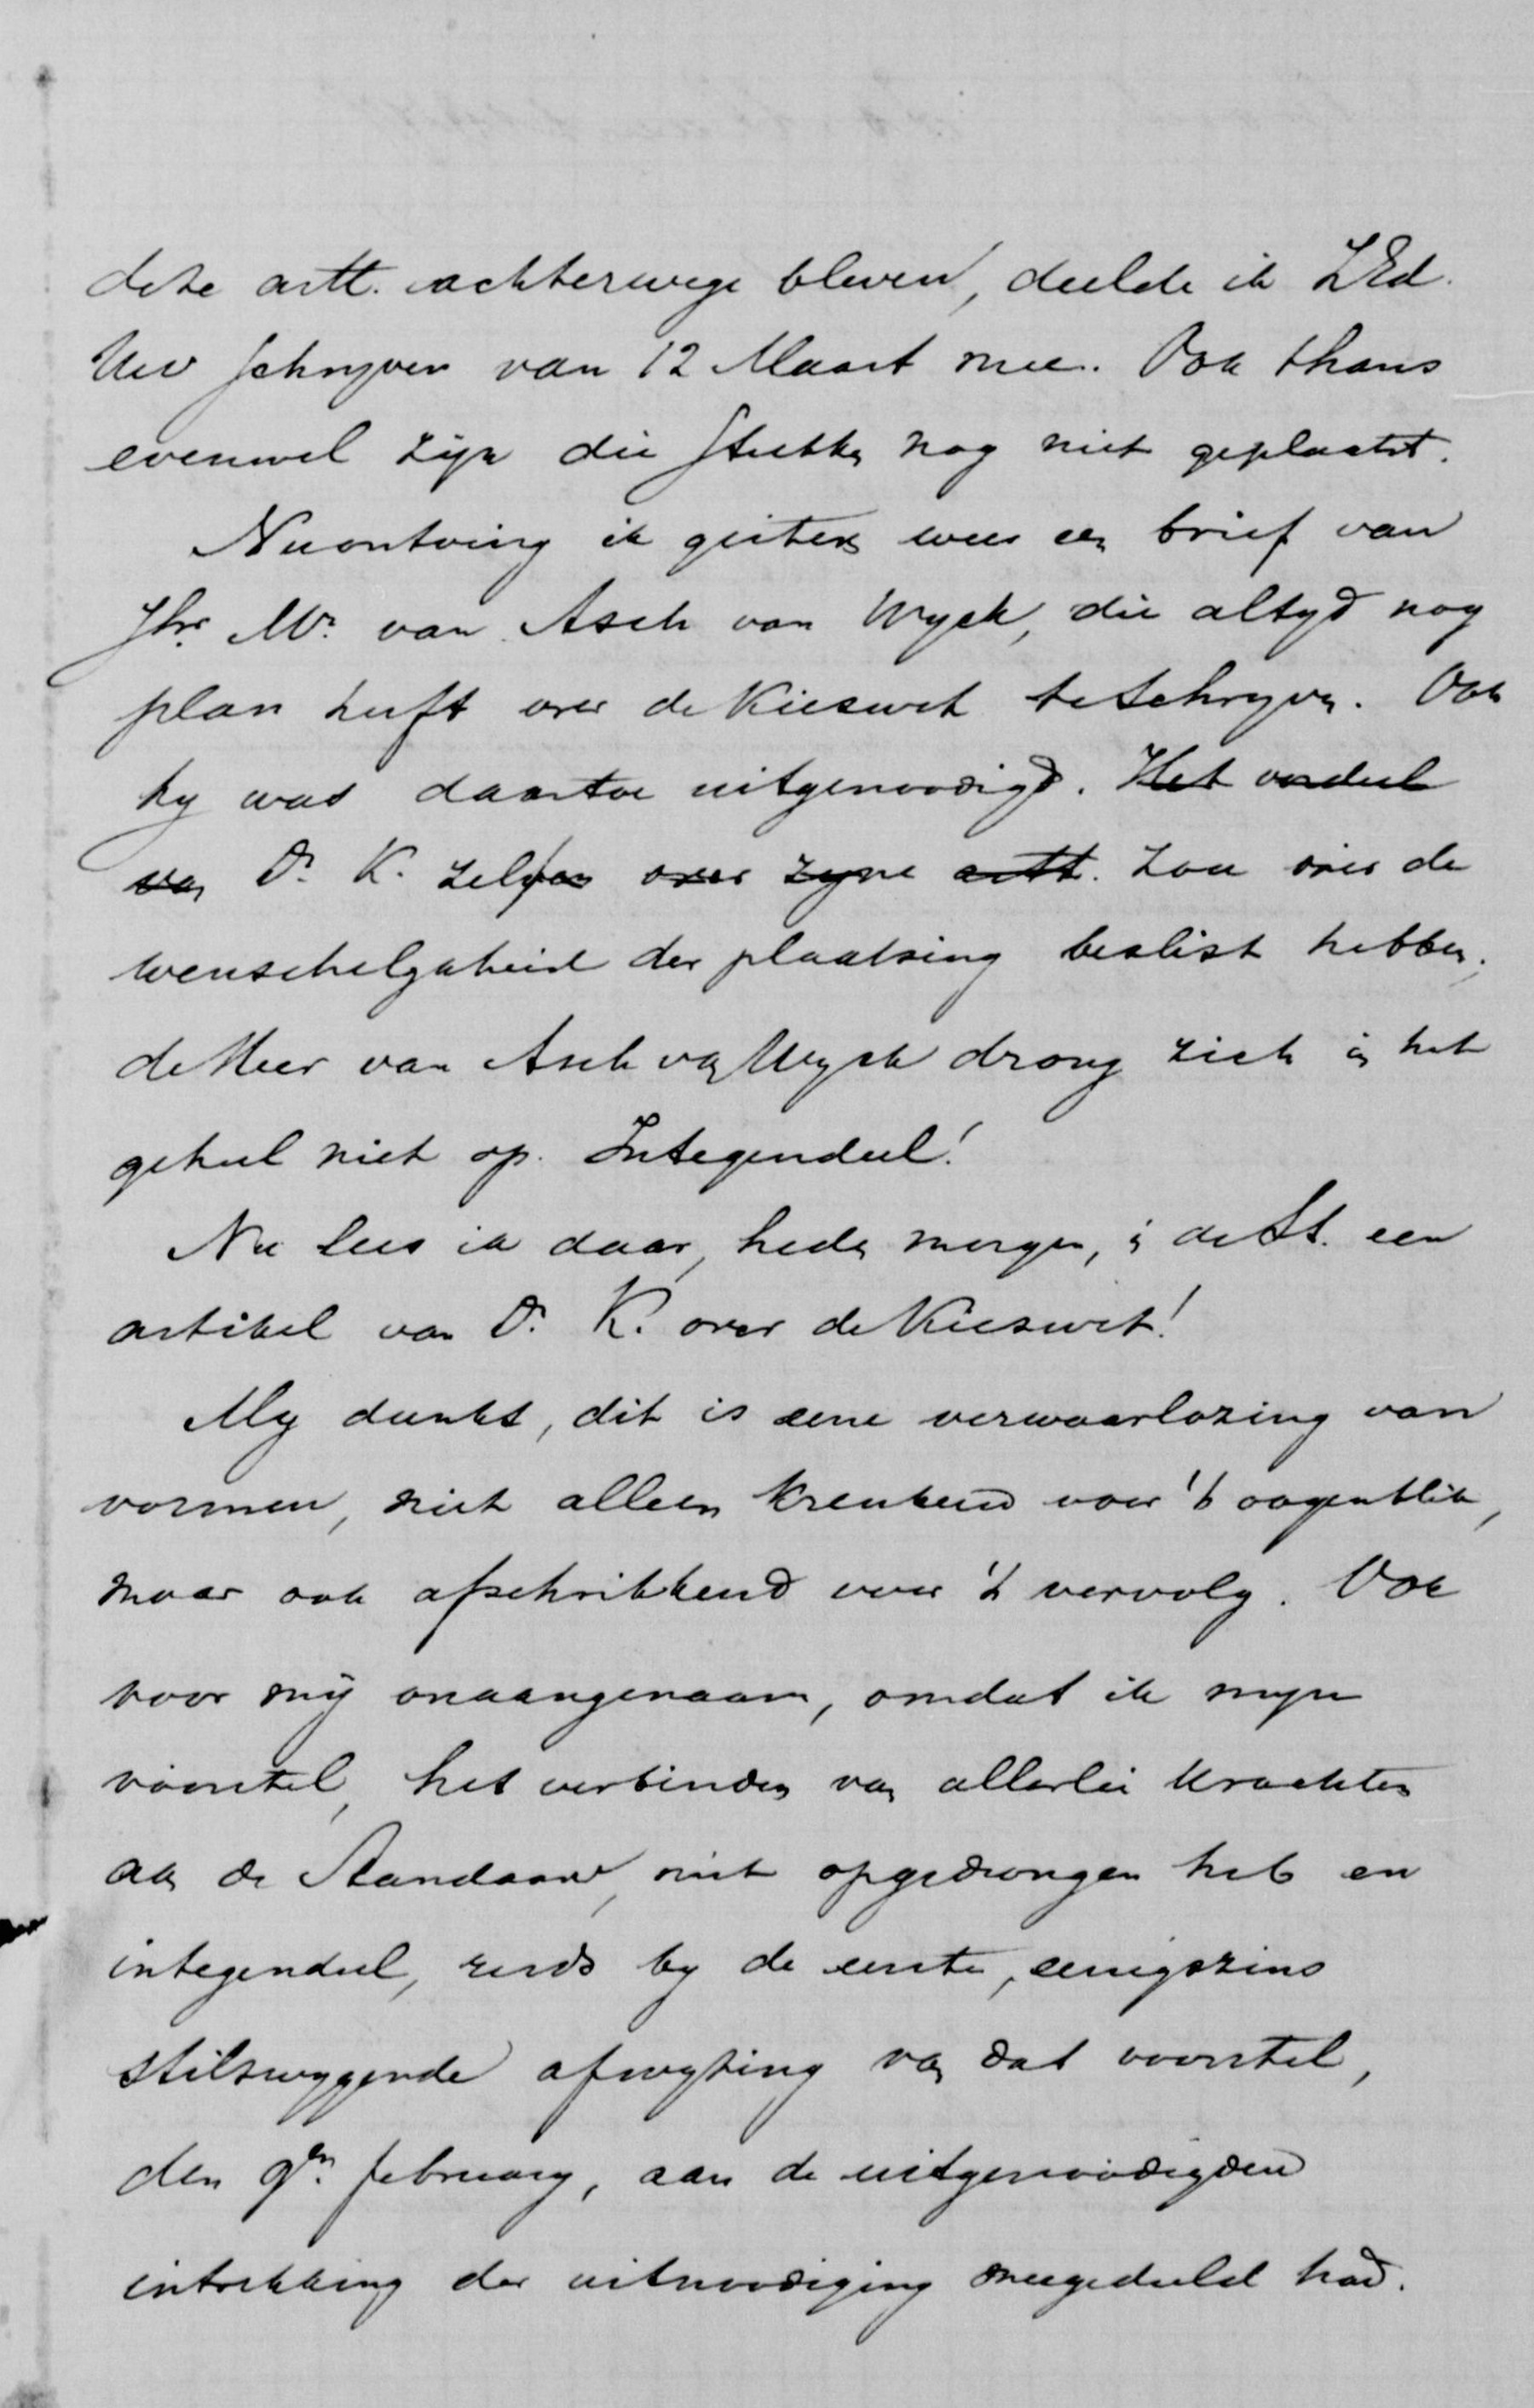 deze artt. achterwege bleven, deelde ik ZEd.
Uw schryven van 12 Maart mee. Ook thans
evenwel zijn die stukken nog niet geplaatst.
Nu ontving ik gisteren weer een brief van
Jhr. Mr. van Asch van Wyck, die altyd nog
plan heeft over de Kieswet te schryven. Ook
hy was daartoe uitgenoodigd. Het oordeel
van Dr. K. zelf over zyne artt. zou over de
wenschelykheid der plaatsing beslist hebben;
de Heer van Asch van Wyck drong zich in het
geheel niet op. Integendeel!
Nu lees ik daar, heden morgen, in de St. een
artikel van Dr. K. over de Kieswet!
My dunkt, dit is eene verwaarlozing van
vormen, niet alleen krenkend voor 't oogenblik,
maar ook afschrikkend voor 't vervolg. Ook
voor mij onaangenaam, omdat ik myn
voorstel, het verbinden van allerlei krachten
aan de Standaard, niet opgedrongen heb en
integendeel, reeds by de eerste, eenigszins
stilzwygende afwyzing van dat voorstel,
den 9en february, aan de uitgenoodigden
intrekking der uitnoodiging meegedeeld had.